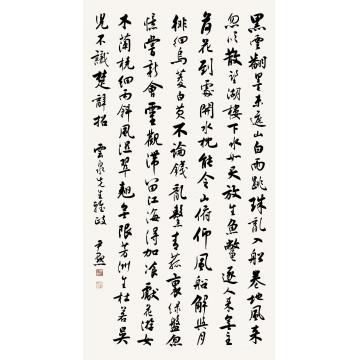 黑雲翻墨未遮山白雨跳珠亂入船卷地風来
忽吹散望湖樓下水如天放生魚鱉逐人来無主
荷花到處開水枕能令山俯仰風船解與月
徘徊烏菱白芡不論錢亂繫青菰裹綠盤忽
憶嘗新會靈觀滯留江海得加餐獻花游女
木蘭橈細雨斜風濕翠翹無限芳洲生杜若吳
兒不識楚辭招 雲泉先生雅政 尹默